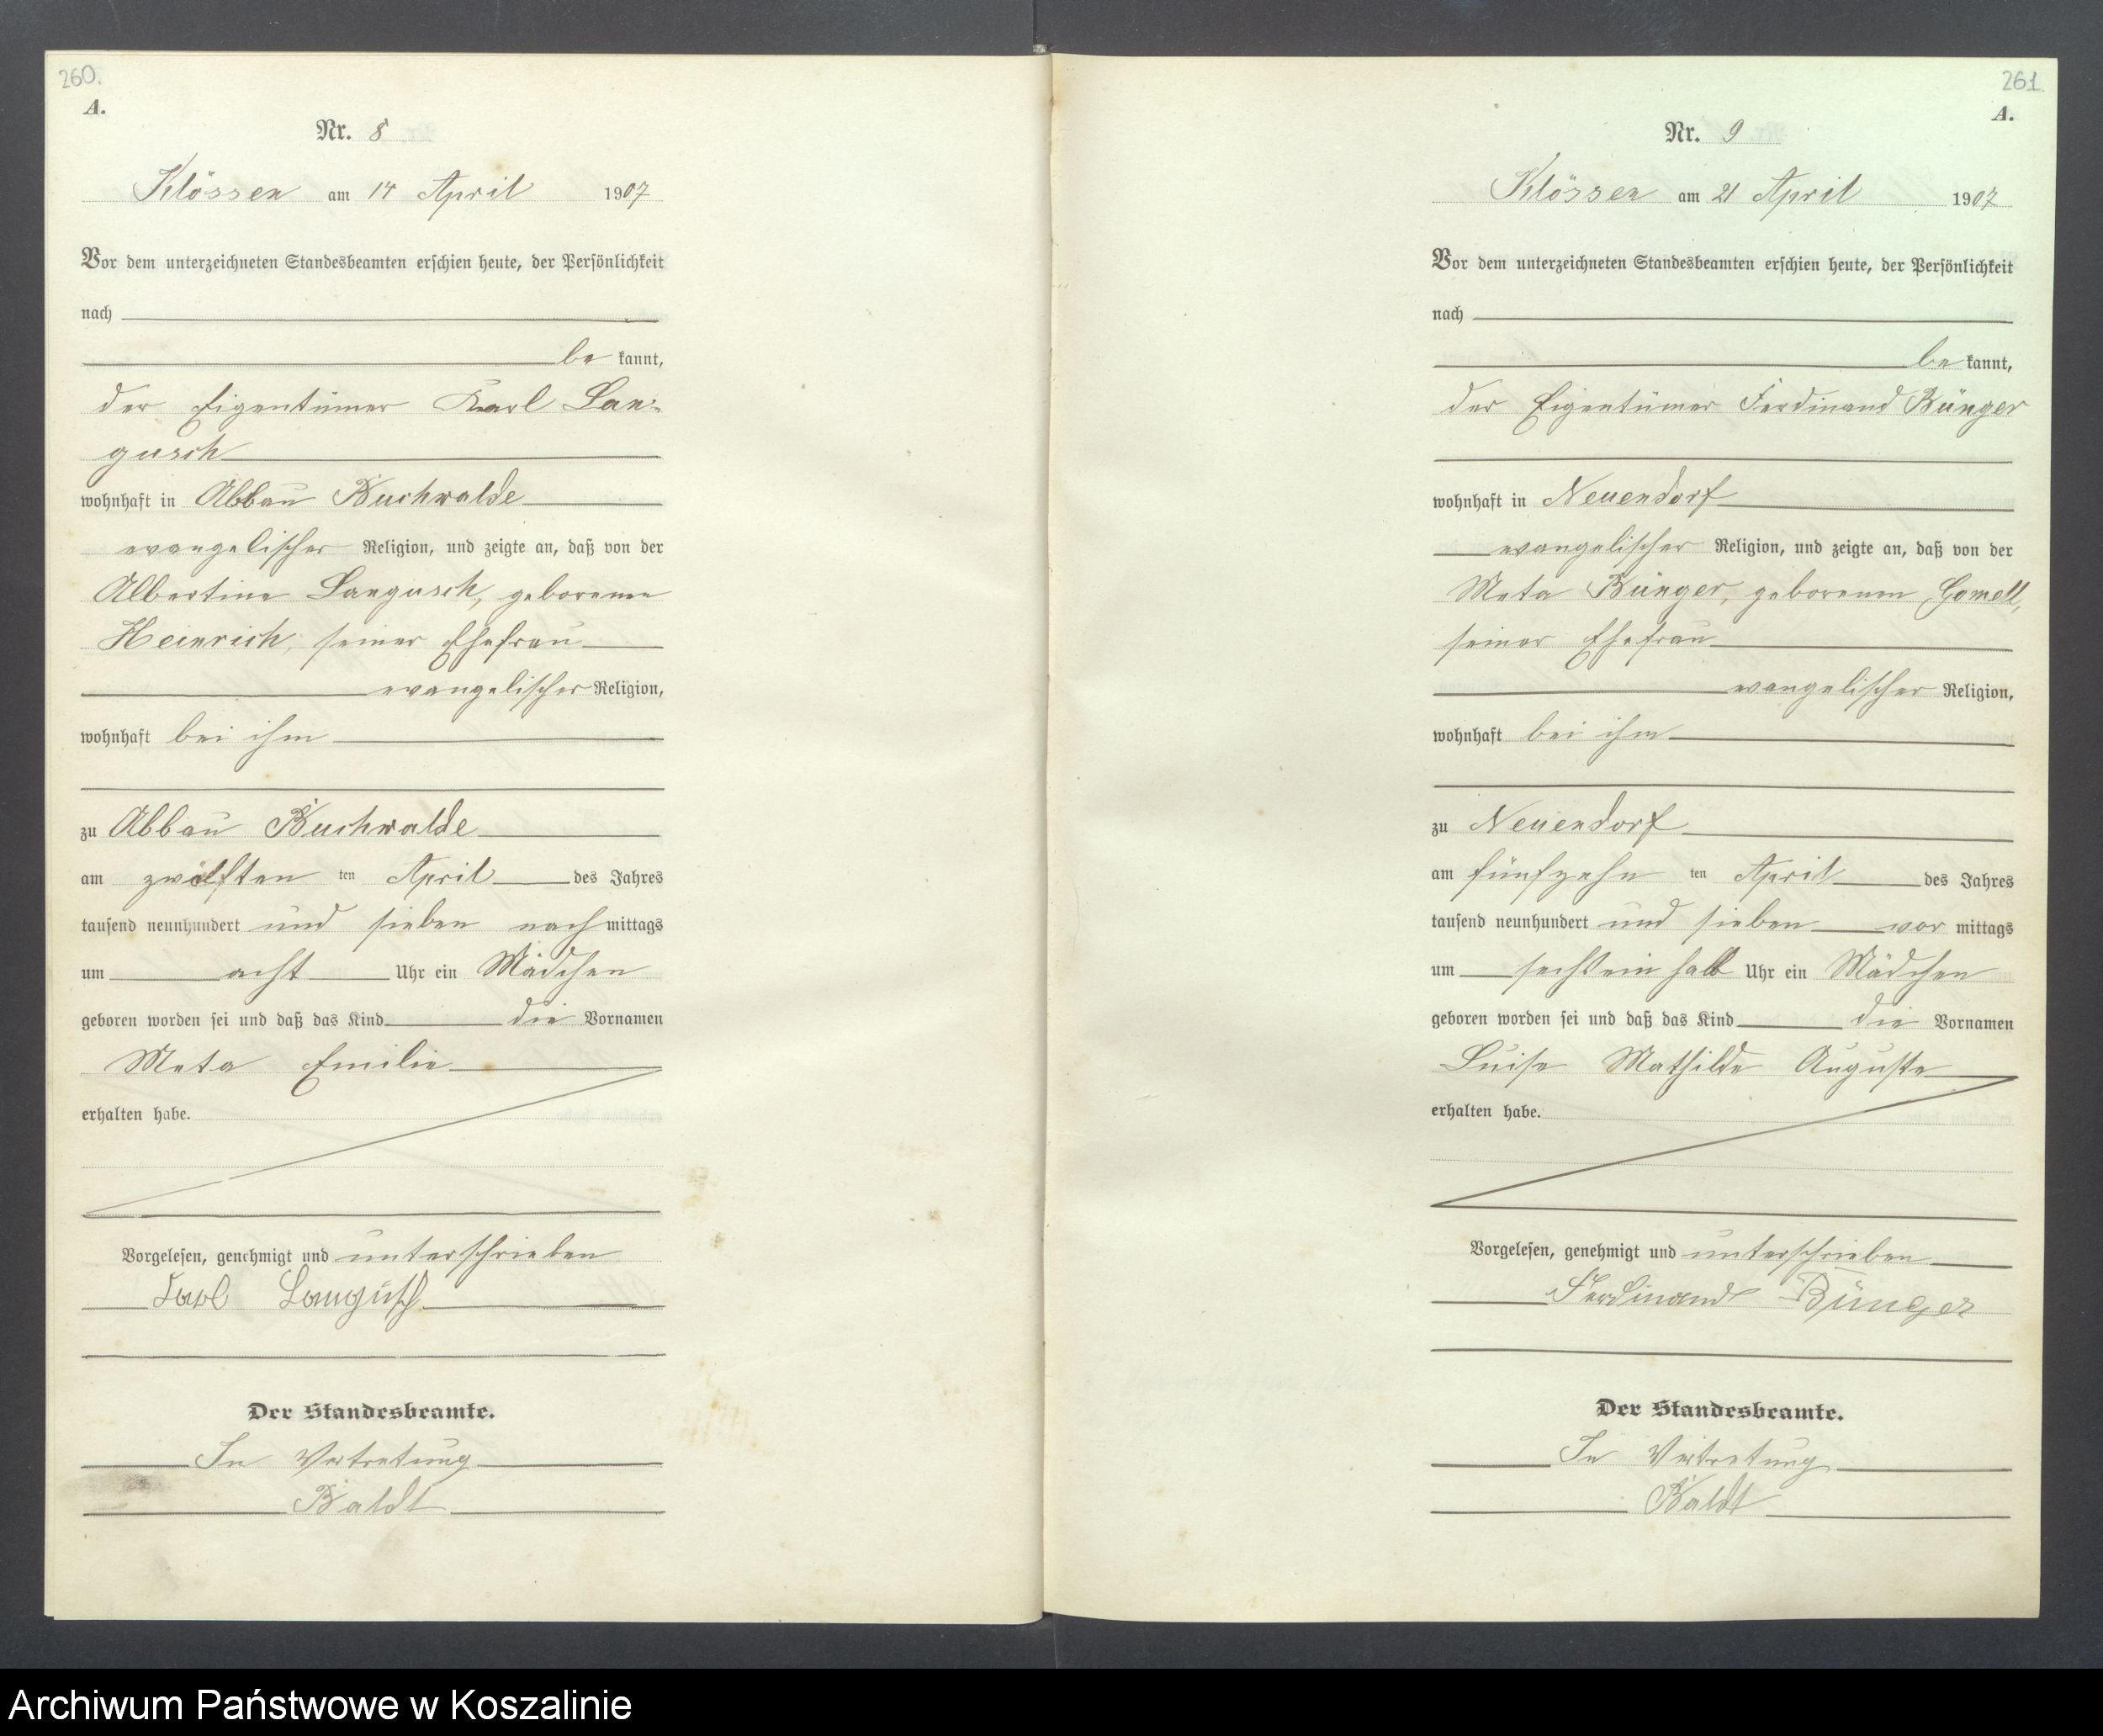 260.
A.
Nr. 8
Klössen am 14 April 1907
Vor dem unterzeichneten Standesbeamten erschien heute, der Persönlichkeit
nach
be kannt,
der Eigentümer Karl Lan-
gusch
wohnhaft in Abbau Buchwalde
evangelischer Religion, und zeigte an, daß von der
Albertine Langusch, geborenen
Heinrich, seiner Ehefrau
evangelischer Religion,
wohnhaft bei ihm
zu Abbau Buchwalde
am zwölften ten April des Jahres
tausend neunhundert und sieben nach mittags
um acht Uhr ein Mädchen
geboren worden sei und daß das Kind die Vornamen
Meta Emilie
erhalten habe.
Vorgelesen, genehmigt und unterschrieben
Karl Langusch
Der Standesbeamte.
In Vertretung
Baldt
261
A.
Nr. 9
Klössen am 21 April 1907
Vor dem unterzeichneten Standesbeamten erschien heute, der Persönlichkeit
nach
be kannt,
der Eigentümer Ferdinand Bünger
wohnhaft in Neuendorf
evangelischer Religion, und zeigte an, daß von der
Meta Bünger, geborenen Gomell,
seiner Ehefrau
evangelischer Religion,
wohnhaft bei ihm
zu Neuendorf
am fünfzehn ten April des Jahres
tausend neunhundert und sieben vor mittags
um sechs ein halb Uhr ein Mädchen
geboren worden sei und daß das Kind die Vornamen
Luise Mathilde Auguste
erhalten habe.
Vorgelesen, genehmigt und unterschrieben
Ferdinand Bünger
Der Standesbeamte.
In Vertretung
Baldt
Archiwum Państwowe w Koszalinie